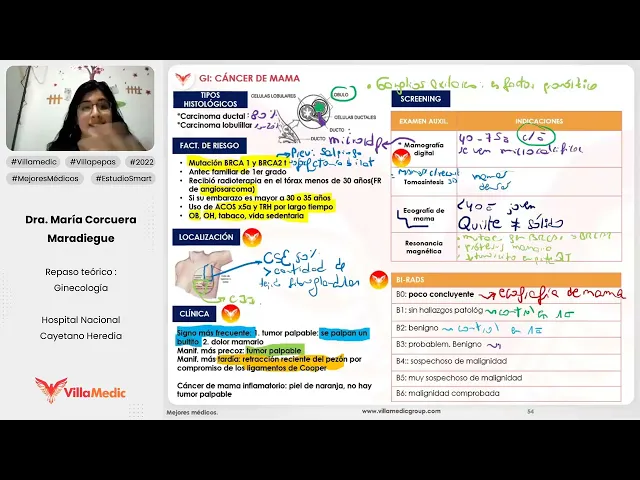 #Villamedic #Villapepas #2022
#MejoresMédicos #EstudioSmart
Dra. María Corcuera
Maradiegue
Repaso teórico :
Ginecología
Hospital Nacional
Cayetano Heredia
VillaMedic
GI: CÁNCER DE MAMA
TIPOS
HISTOLÓGICOS
*Carcinoma ductal: 80%
*Carcinoma lobulillar
CÉLULAS LOBULARES
LÓBULO
CÉLULAS DUCTALES
DUCTO
DUCTO
FACT. DE RIESGO
Mutación BRCA 1 y BRCA2!
Antec familiar de 1er grado
Recibió radioterapia en el tórax menos de 30 años(FR
de angiosarcoma)
Si su embarazo es mayor a 30 o 35 años
Uso de ACOS x5a y TRH por largo tiempo
OB, OH, tabaco, vida sedentaria
LOCALIZACIÓN
CSE 50%
> cantidad de
CLÍNICA
Signo más frecuente: 1. tumor palpable: se palpan un
bultito 2. dolor mamario
Manif. más precoz: tumor palpable
Manif. más tardía: retracción reciente del pezón por
compromiso de los ligamentos de Cooper
Cáncer de mama inflamatorio: piel de naranja, no hay
tumor palpable
Mejores médicos.
SCREENING
EXAMEN AUXIL. INDICACIONES
* Mamografía
digital
40-75a
se ven
Tomosíntesis 3D
mamas
densas
Ecografía de
mama
<40a joven
Quiste ≠ sólido
Resonancia
magnética
BI-RADS
B0: poco concluyente → ecografía de mama
B1: sin hallazgos patológ → control en 1a
B2: benigno → control en 1a
B3: probablem. Benigno
B4:: sospechoso de malignidad
B5: muy sospechoso de malignidad
B6: malignidad comprobada
www.villamedicgroup.com
54